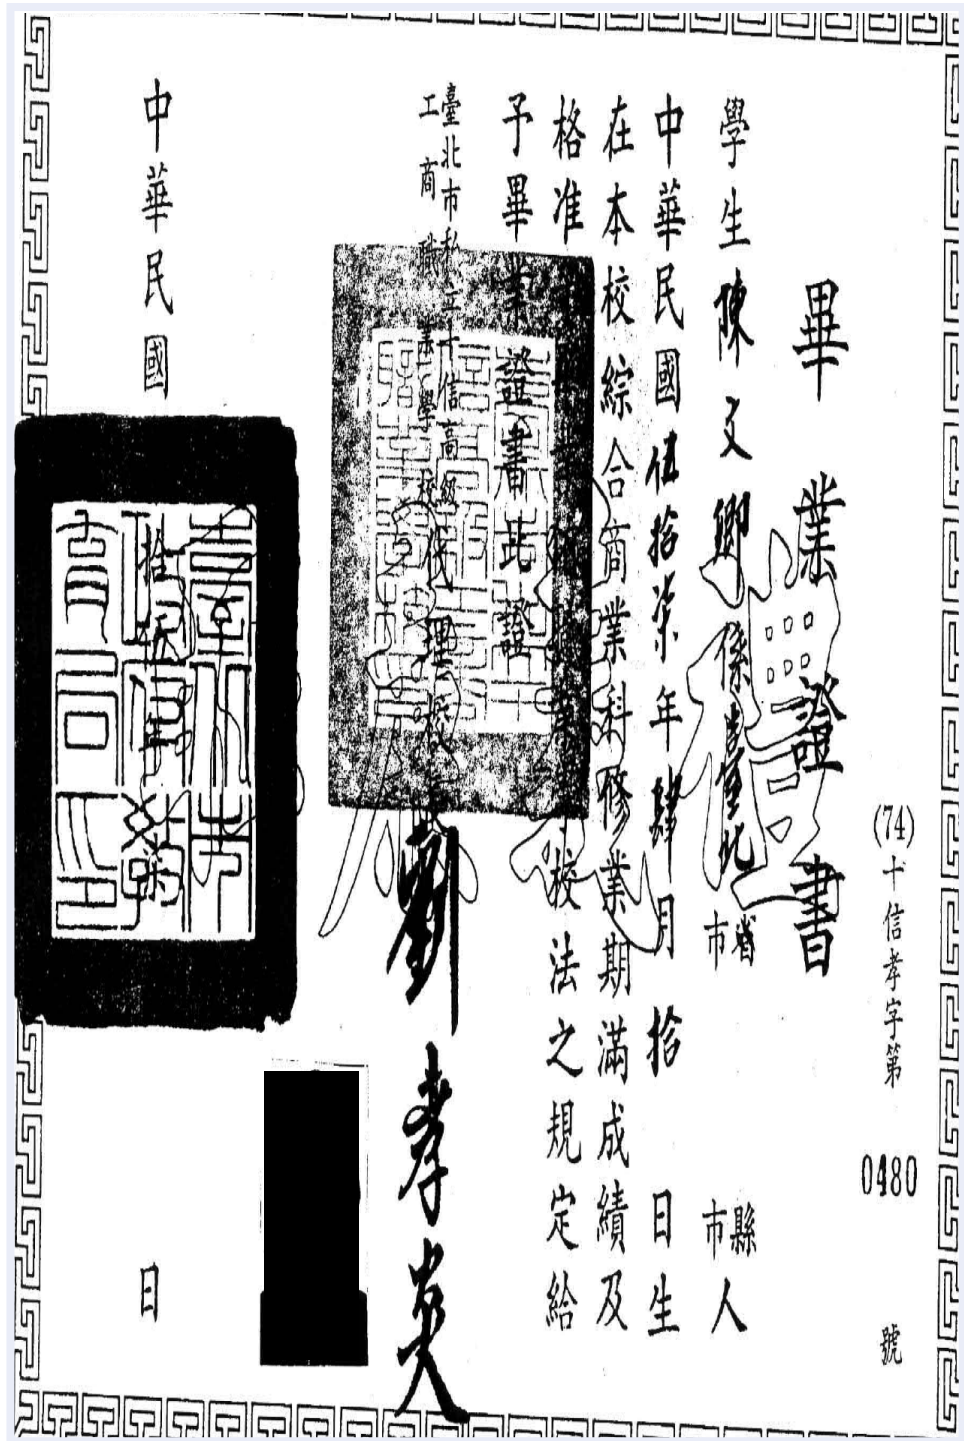 畢業證書
(74)十信孝字第 0480 號
學生陳文卿係臺灣臺北省市 縣市人
中華民國伍拾柒年肆月拾日生
在本校綜合商業科修業期滿成績及
格准 校法之規定給
予畢業證書此證
臺北市私立十信高級
工商職業學校代理校 劉孝炎
中華民國 拾 年 日